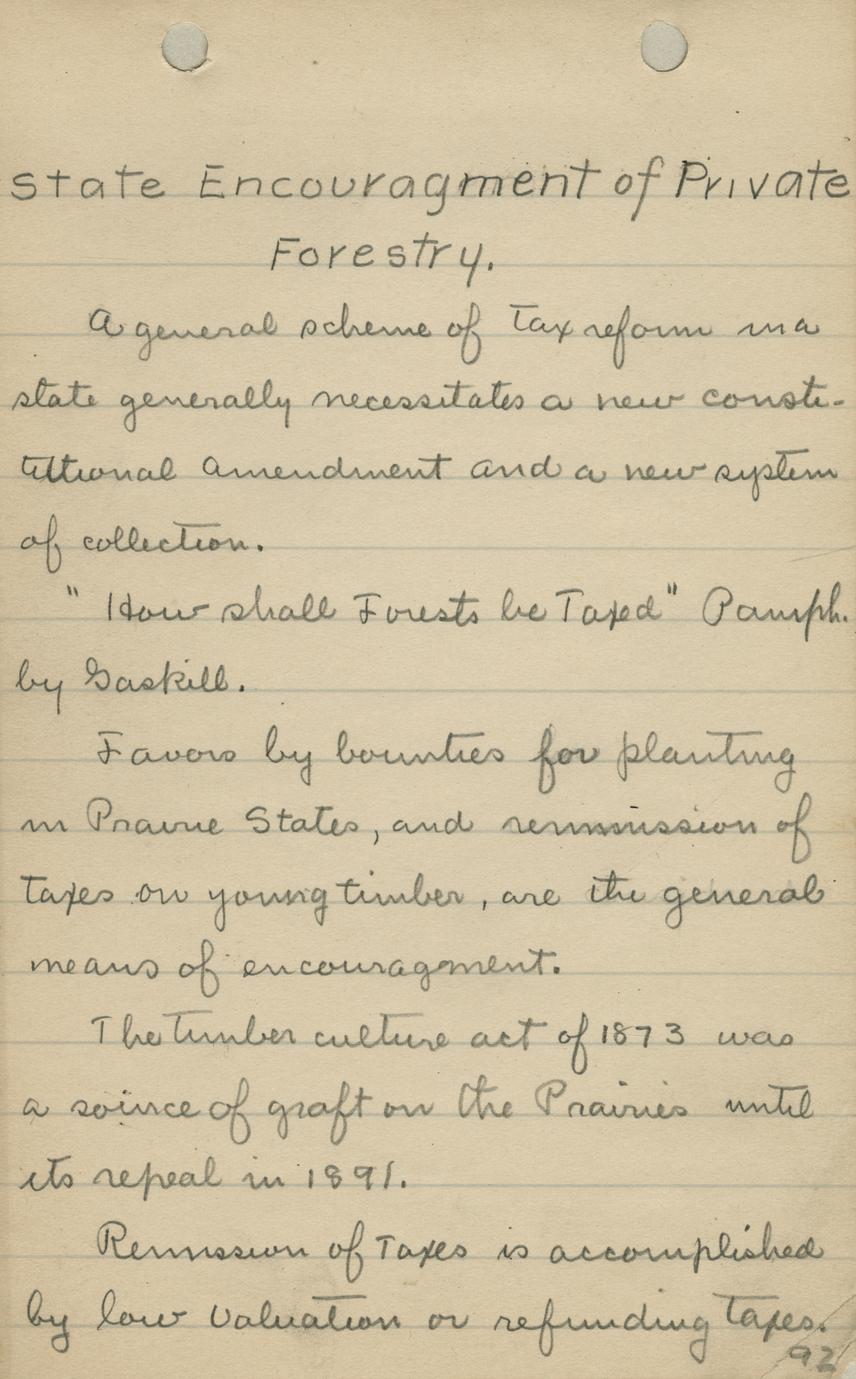 State Encouragment of Private
Forestry.
A general scheme of Tax reform in a
state generally necessitates a new consti-
tutional amendment and a new system
of collection.
" How shall Forests be Taxed" Pamph.
by Gaskill.
Favors by bounties for planting
in Prairie States, and remmission of
taxes on young timber, are the general
means of encouragment.
The timber culture act of 1873 was
a soirce of graft on the Prairies until
its repeal in 1891.
Remission of Taxes is accomplished
by low valuation or refunding taxes.
92